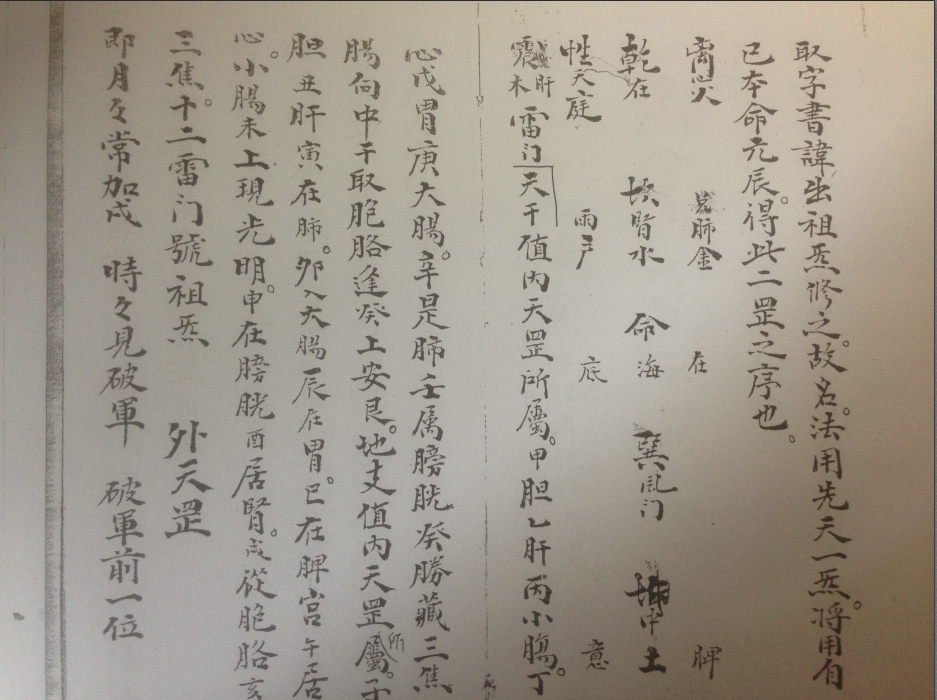 取字書諱出祖炁修之。故名。法用先天一炁。将用自
已本命元辰。得此二罡之序也。
离心火 兑肺金 在 脾
乾在 坎腎水 命海 巽風门 坤中土
性天庭 雨戸 底 意
震肝木 雷门 天干值内天罡所屬。甲胆乙肝丙小腸。丁
心戊胃庚大腸。辛是肺壬属膀胱癸勝藏三焦
腸向中干取胞胳逢癸上安艮。地支值内天罡所屬。子
胆丑肝寅在肺。卯入大腸辰在胃。巳在脾宫午居
心。小腸未上現光明。申在膀胱酉居腎。戌從胞胳亥
三焦。十二雷门號祖炁 外天罡
即月々常加戌 時々見破軍 破軍前一位